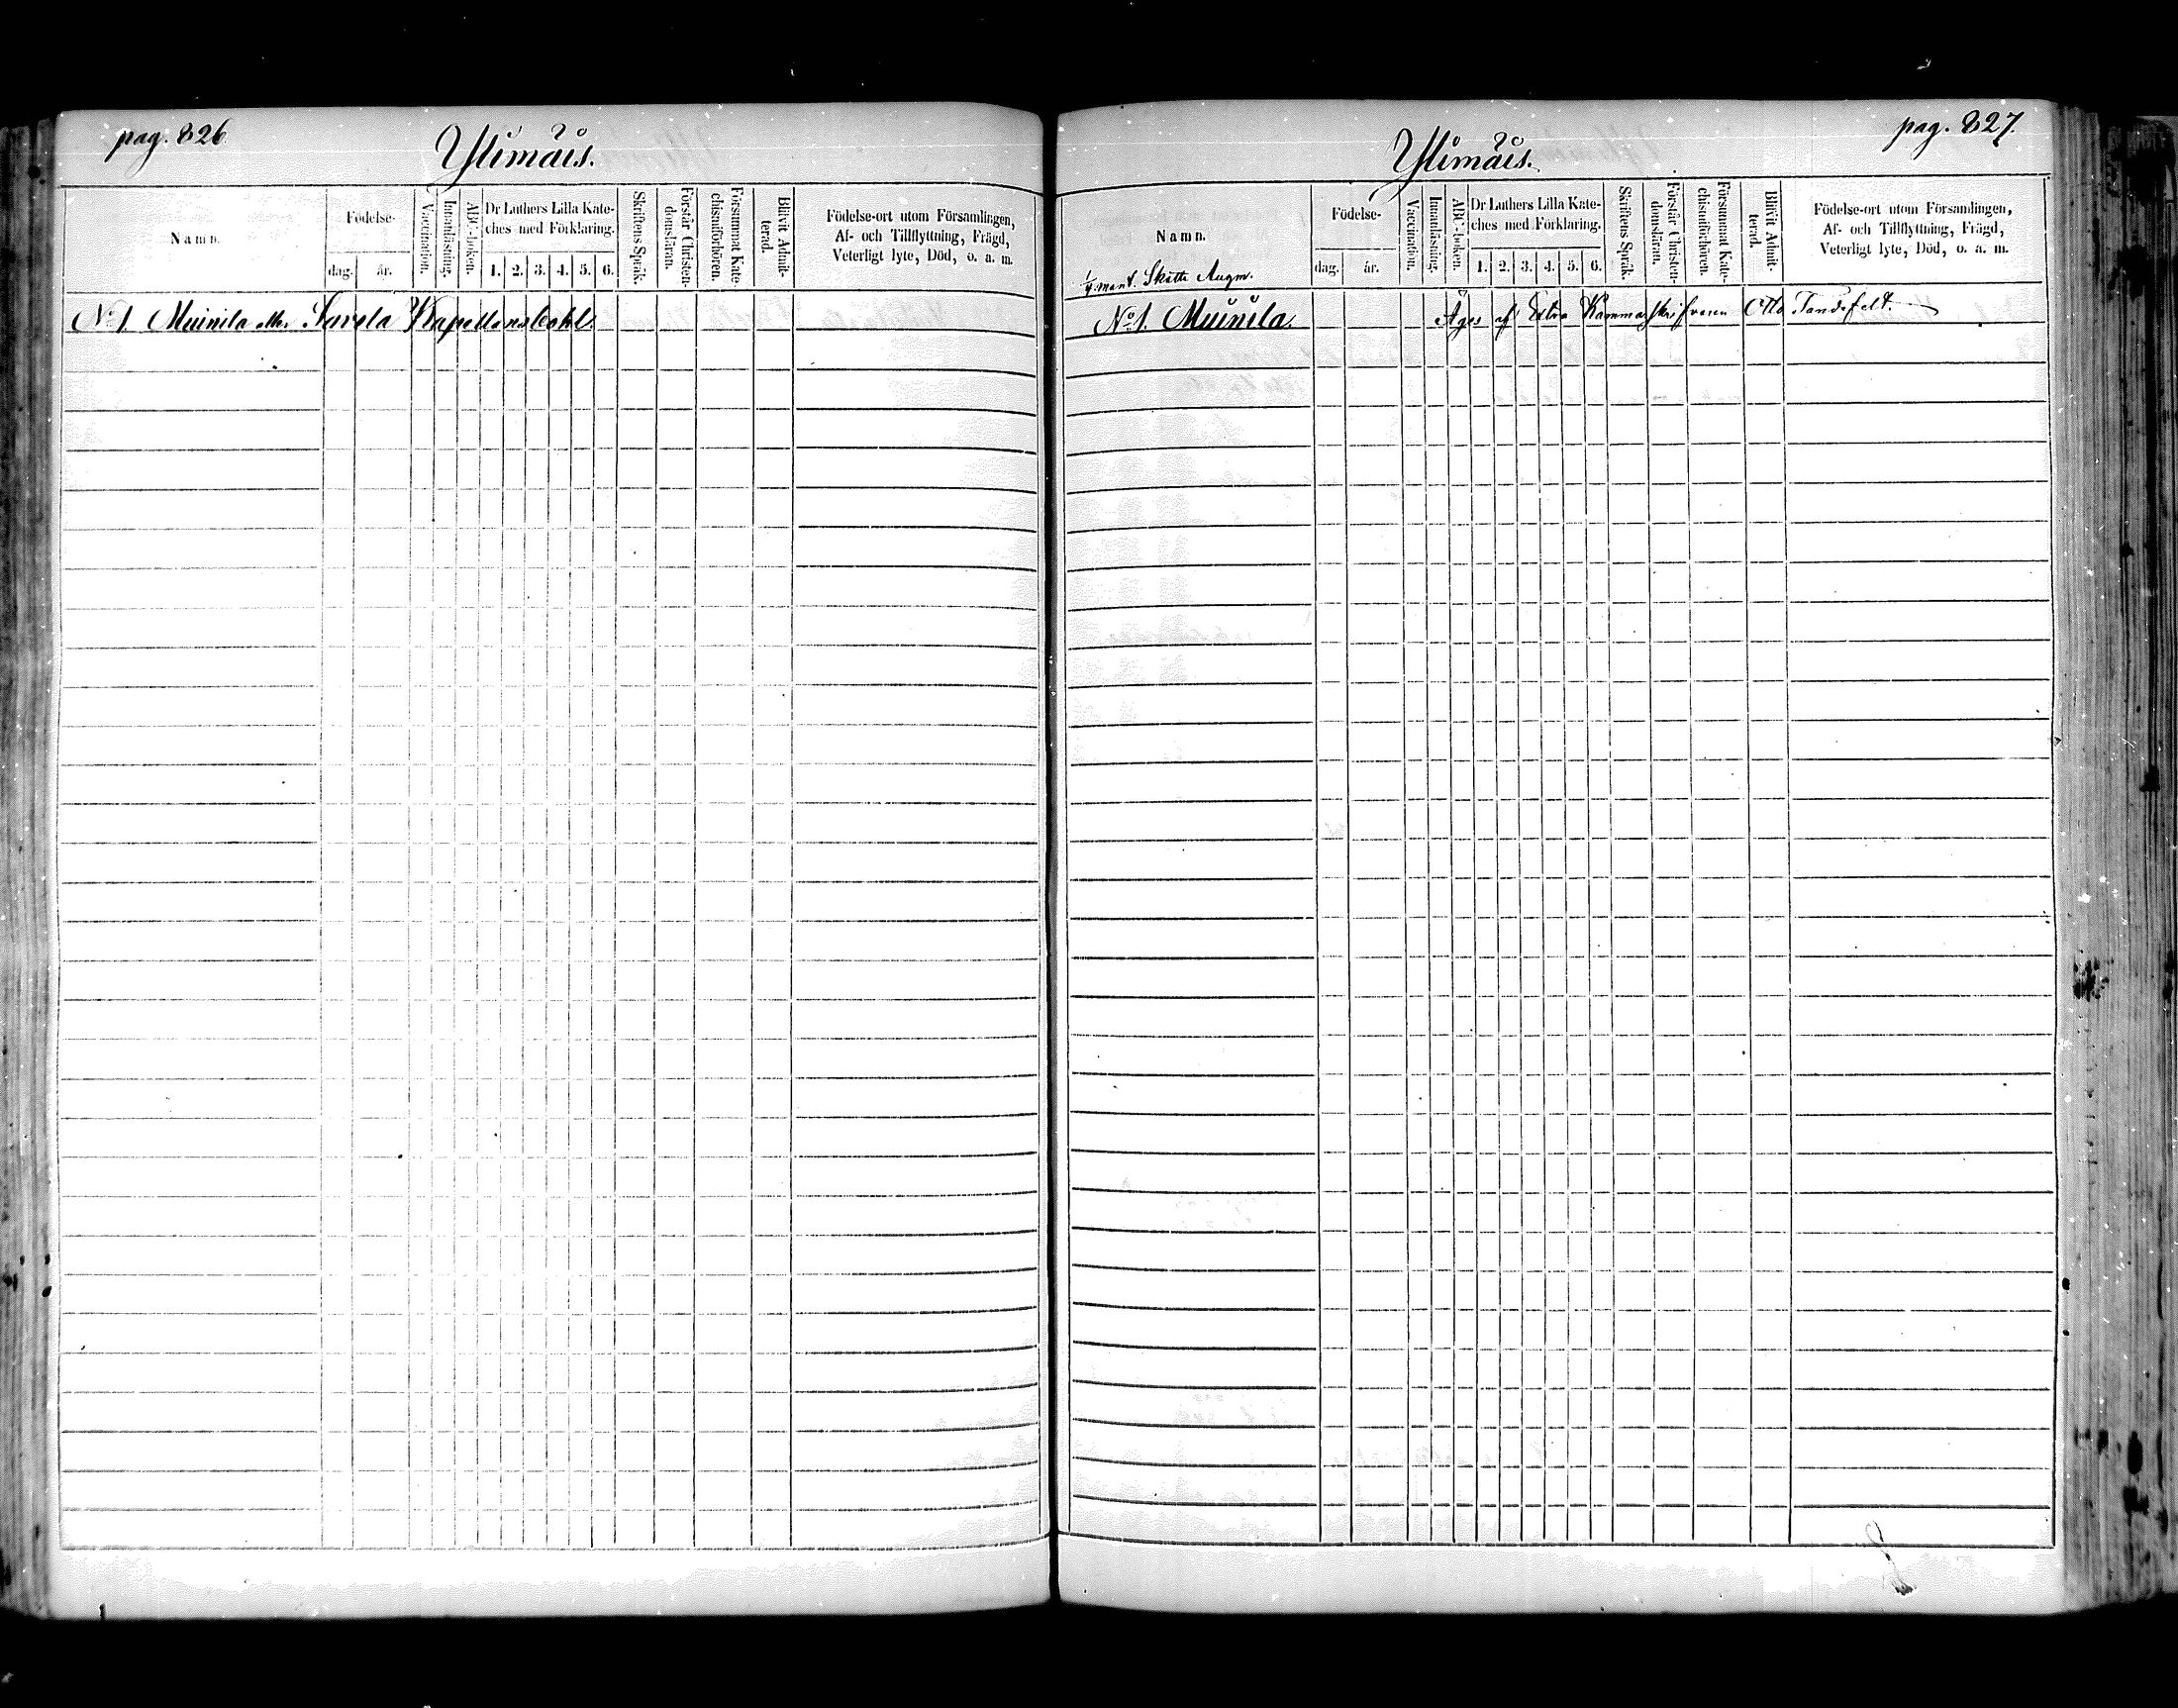 pag. 826
Ylimäis.
Namn.
Födelse-
dag.
år.
Vaccination.
Innanläsning.
ABC-boken.
Dr Luthers Lilla Kate-
ches med Förklaring.
1. 2. 3. 4. 5. 6.
Skriftens Språk.
Förstår Christen-
domsläran.
Försummat Kate-
chismiförhören.
Blifvit Admit-
terad.
Födelse-ort utom Församlingen,
Af- och Tillflyttning, Frägd,
Veterligt lyte, Död, o. a. m.
No 1. Muinila eller Savela Kapellansbohl.
pag. 827.
Ylimäis.
Namn.
Födelse-
dag.
år.
Vaccination.
Innanläsning.
ABC-boken.
Dr Luthers Lilla Kate-
ches med Förklaring.
1. 2. 3. 4. 5. 6.
Skriftens Språk.
Förstår Christen-
domsläran.
Försummat Kate-
chismiförhören.
Blifvit Admit-
terad.
Födelse-ort utom Församlingen,
Af- och Tillflyttning, Frägd,
Veterligt lyte, Död, o. a. m.
mant. Skatte Augm.
No 1. Muinila. Äges af Extra Kammarskrifvaren Otto Tandefelt.